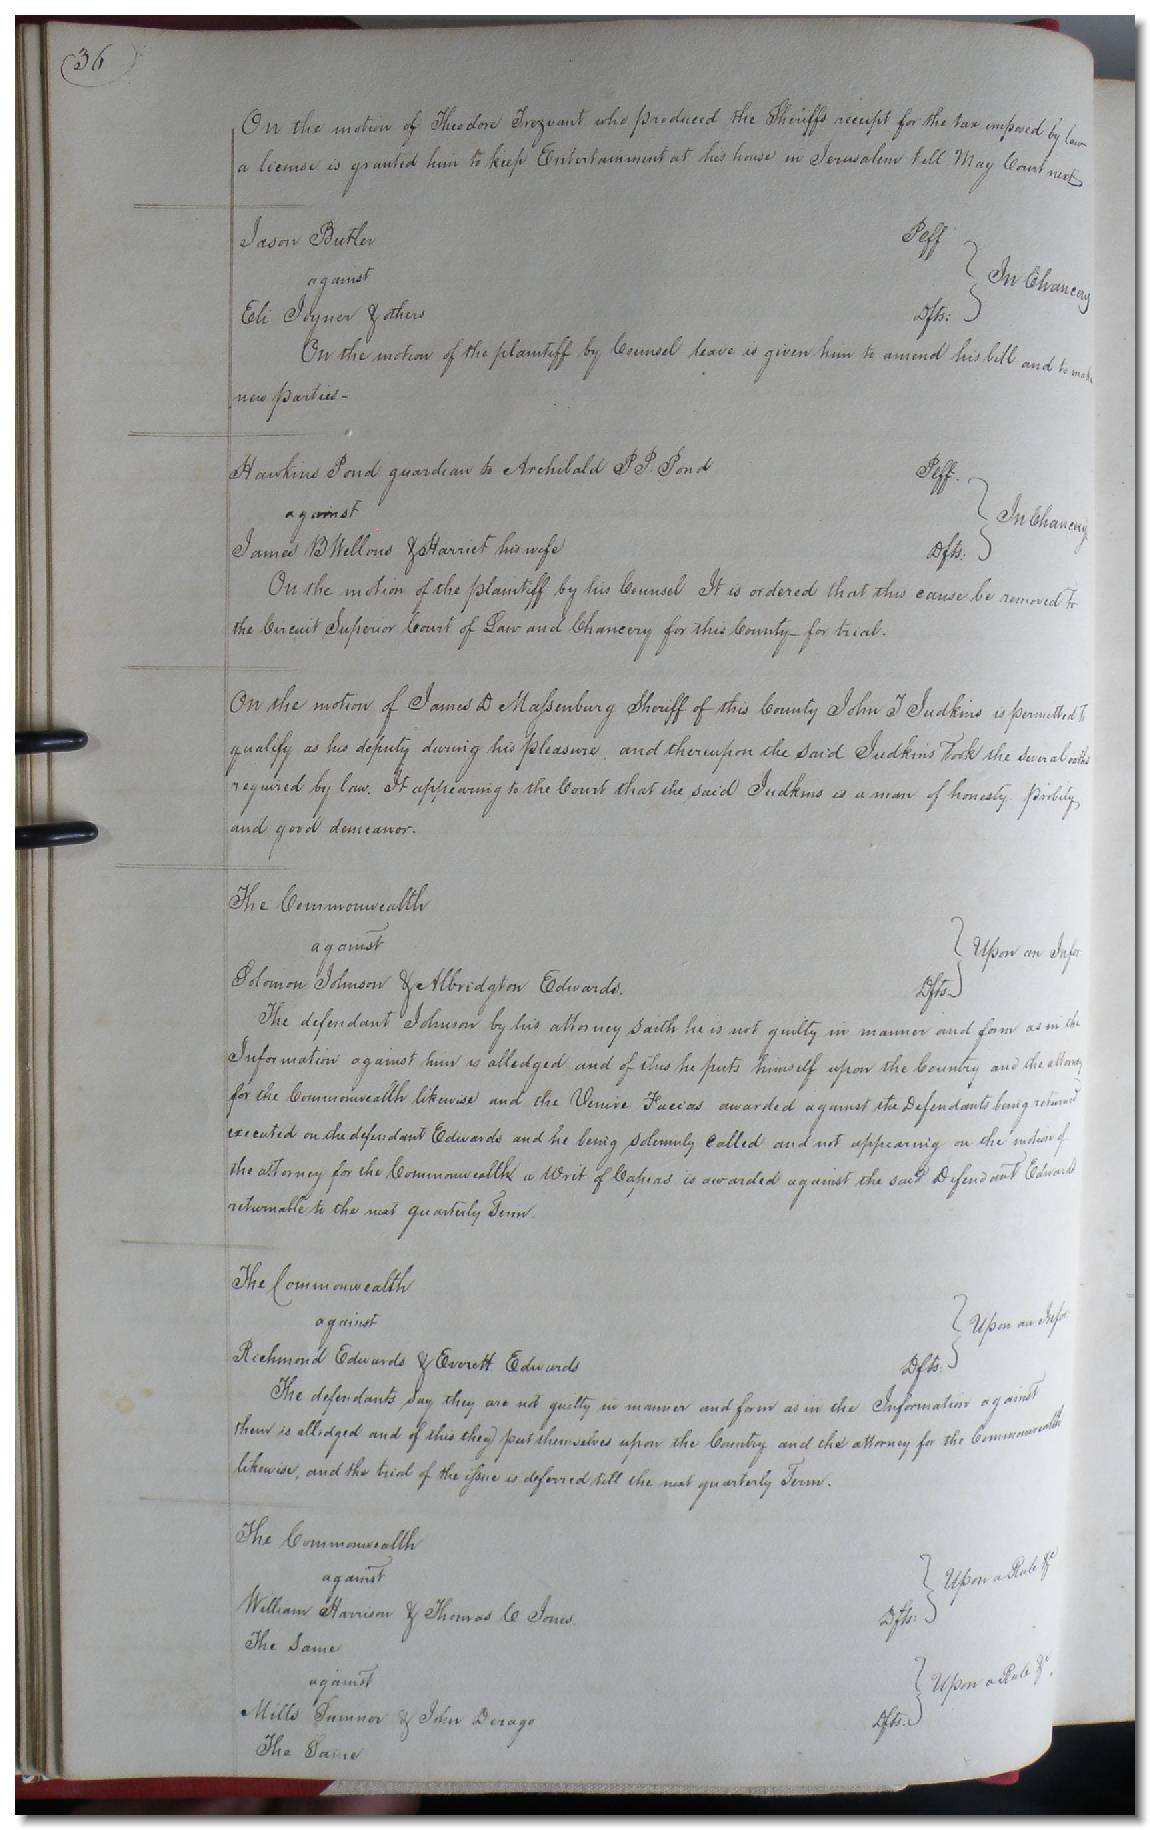 36
On the motion of Theodore Trezvant who produced the Sheriffs receipt for the tax imposed by law
a license is granted him to keep Entertainment at his house in Jerusalem till May Court next
Jason Butler Peff
against In Chancery
Eli Joyner & others Dfts:
On the motion of the plaintiff by Counsel leave is given him to amend his bill and to make
new parties-
Hawkins Pond guardian to Archibald P.P. Pond Peff.
against In Chancery
James B Wellons & Harriet his wife Dfts:
On the motion of the plaintiff by his Counsel It is ordered that this cause be removed to
the Circuit Superior Court of Law and Chancery for this County - for trial.
On the motion of James D Massenburg Sheriff of this County John T Judkins is permitted to
qualify as his deputy during his pleasure, and thereupon the said Judkins took the several oaths
required by law. It appearing to the Court that the said Judkins is a man of honesty probity
and good demeanor.
The Commonwealth
against Upon an Infor
Solomon Johnson & Albridgton Edwards. Dfts
The defendant Johnson by his attorney saith he is not guilty in manner and form as in the
Information against him is alledged and of this he puts himself upon the Country and the attorney
for the Commonwealth likewise and the Venire Facias awarded against the Defendants being returned
executed on the defendant Edwards and he being solemnly called and not appearing on the motion of
the attorney for the Commonwealth a Writ of Capias is awarded against the said Defendant Edwards
returnable to the next quarterly Term.
The Commonwealth
against Upon an Infor
Richmond Edwards & Everett Edwards Dfts:
The defendants say they are not guilty in manner and form as in the Information against
them is alledged and of this they put themselves upon the Country and the attorney for the Commonwealth
likewise, and the trial of the issue is deferred till the next quarterly Term.
The Commonwealth
against Upon a Rule &c
William Harrison & Thomas C Jones. Dfts:
The Same
against Upon a Rule &c.
Mills Sumner & John Dorago Dfts:
The Same